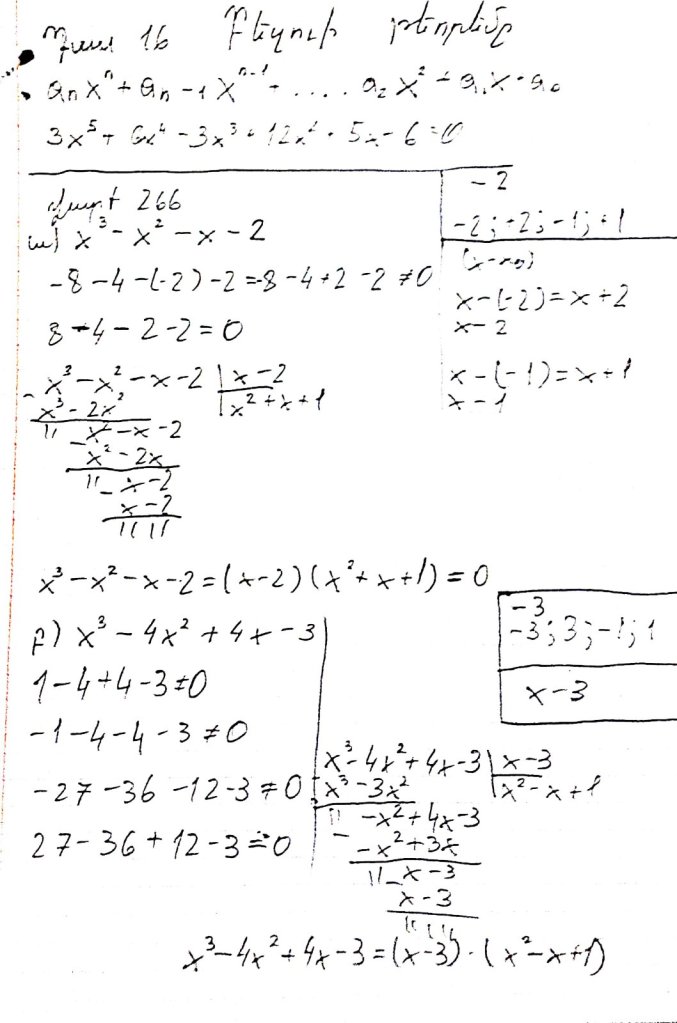 Դաս 16 Բեզուի թեորեմը
aₙxⁿ + aₙ₋₁xⁿ⁻¹ + .... a₂x² + a₁x + a₀
3x⁵ + 6x⁴ - 3x³ + 12x² + 5x - 6 = 0
266
ա) x³ - x² - x - 2
-8 - 4 - (-2) - 2 = -8 - 4 + 2 - 2 ≠ 0
8 - 4 - 2 - 2 = 0
-2
-2; +2; -1; +1
x - (-2) = x + 2
x - 2
x - (-1) = x + 1
x - 1
x³ - x² - x - 2 | x - 2
x³ - 2x² | x² + x + 1
" x² - x - 2
x² - 2x
" x - 2
x - 2
" "
x³ - x² - x - 2 = (x - 2)(x² + x + 1) = 0
բ) x³ - 4x² + 4x - 3
1 - 4 + 4 - 3 ≠ 0
-1 - 4 - 4 - 3 ≠ 0
-27 - 36 - 12 - 3 ≠ 0
27 - 36 + 12 - 3 = 0
-3
-3; 3; -1; 1
x - 3
x³ - 4x² + 4x - 3 | x - 3
x³ - 3x² | x² - x + 1
" -x² + 4x - 3
-x² + 3x
" x - 3
x - 3
" "
x³ - 4x² + 4x - 3 = (x - 3) · (x² - x + 1)